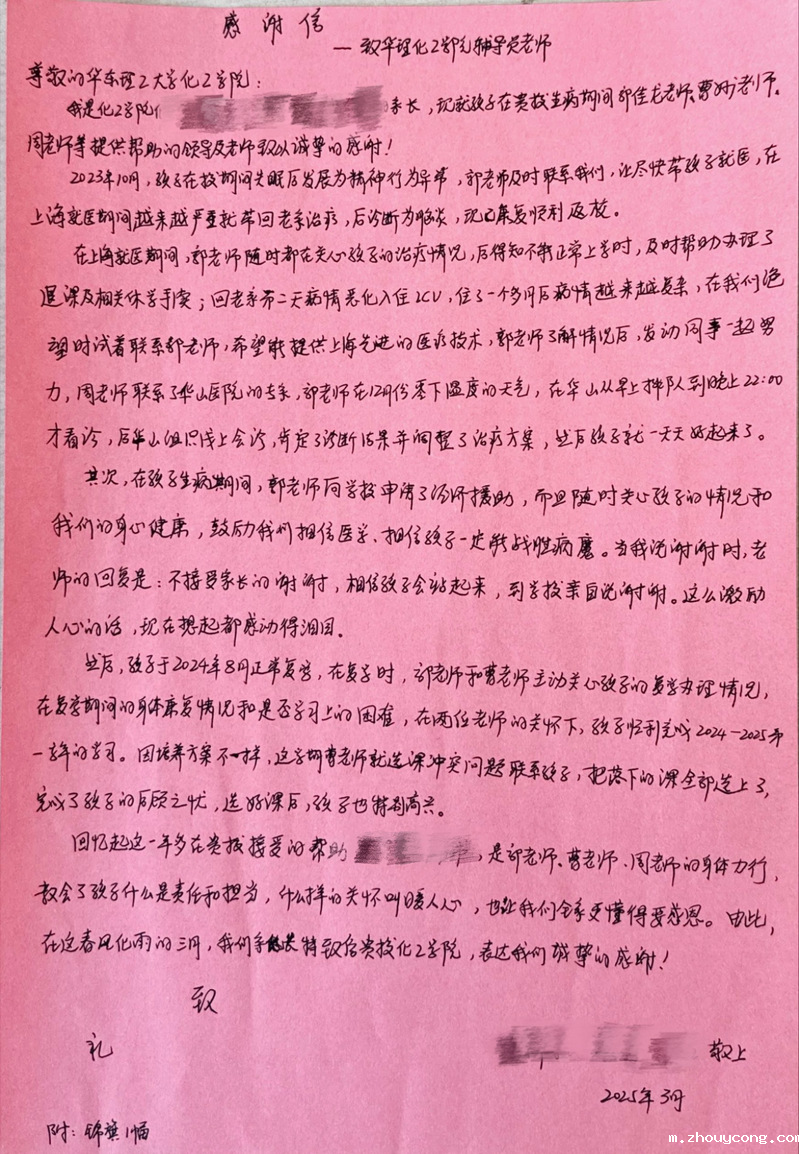 感谢信
—致华理化工学院辅导员老师
尊敬的华东理工大学化工学院:
我是化工学院 家长,现就孩子在贵校生病期间郭佳龙老师、曹妙老师、
周老师等提供帮助的领导及老师致以诚挚的感谢!
2023年10月,孩子在校期间失眠后发展为精神行为异常,郭老师及时联系我们,让尽快带孩子就医,在
上海就医期间越来越严重就带回老家治疗,后诊断为脑炎,现已康复顺利返校。
在上海就医期间,郭老师随时都在关心孩子的治疗情况,后得知不能正常上学时,及时帮助办理了
退课及相关休学手续;回老家第二天病情恶化入住ICU,住了一个多月后病情越来越复杂,在我们绝
望时试着联系郭老师,希望能提供上海先进的医疗技术,郭老师了解情况后,发动同事一起努
力,周老师联系了华山医院的专家,郭老师在12月份零下温度的天气,在华山从早上排队到晚上22:00
才看诊,后华山组织线上会诊,肯定了诊断结果并调整了治疗方案,然后孩子就一天天好起来了。
其次,在孩子生病期间,郭老师向学校申请了经济援助,而且随时关心孩子的情况和
我们的身心健康,鼓励我们相信医学、相信孩子一定能战胜病魔。当我说谢谢时,老
师的回复是:不接受家长的谢谢,相信孩子会站起来,到学校亲自说谢谢。这么激励
人心的话,现在想起都感动得泪目。
然后,孩子于2024年8月正常复学,在复学时,郭老师和曹老师主动关心孩子的复学办理情况,
在复学期间的身体康复情况和是否学习上的困难,在两位老师的关怀下,孩子顺利完成2024-2025第
一学年的学习。因培养方案不一样,这学期曹老师就选课冲突问题联系孩子,把落下的课全部选上了,
完成了孩子的后顾之忧,选好课后,孩子也特别高兴。
回忆起这一年多在贵校接受的帮助 ,是郭老师、曹老师、周老师的身体力行,
教会了孩子什么是责任和担当,什么样的关怀叫暖人心,也让我们全家更懂得要感恩。由此,
在这春风化雨的三月,我们 特致信贵校化工学院,表达我们诚挚的感谢!
致
礼
敬上
2025年3月
附:锦旗1幅
m.zhouycong.com